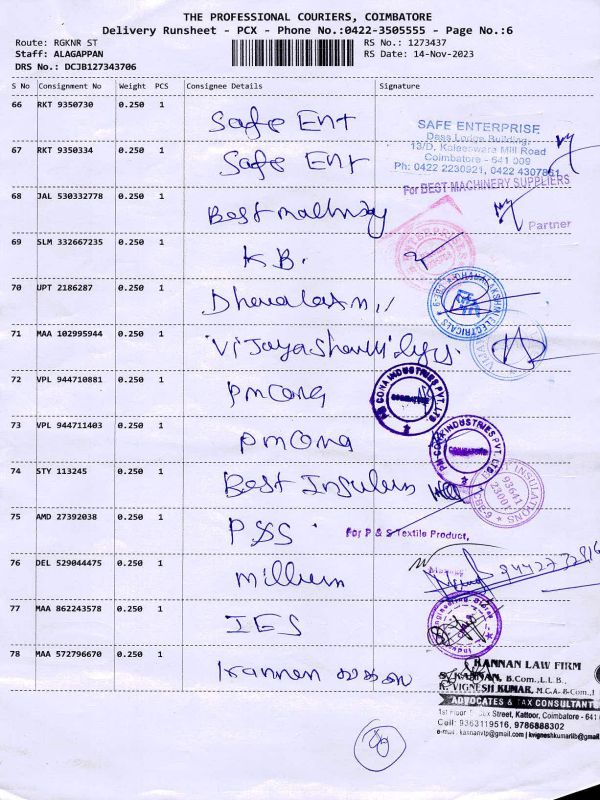 THE PROFESSIONAL COURIERS, COIMBATORE
Delivery Runsheet - PCX - Phone No.:0422-3505555 - Page No.:6
Route: RGKNR ST
RS No.: 1273437
Staff: ALAGAPPAN
RS Date: 14-Nov-2023
DRS No.: DCJB127343706
S No Consignment No Weight PCS Consignee Details Signature
66 RKT 9350730 0.250 1 Safe Ent
SAFE ENTERPRISE
Dass Lodge Building,
13/D, Kaleeswara Mill Road
Coimbatore - 641 009
Ph: 0422 2230921, 0422 4307861
67 RKT 9350334 0.250 1 Safe Ent
For BEST MACHINERY SUPPLIERS
Partner
68 JAL 530332778 0.250 1 Best
69 SLM 332667235 0.250 1 K.B.
70 UPT 2186287 0.250 1
71 MAA 102995944 0.250 1
72 VPL 944710881 0.250 1 PMCona
PM CONA INDUSTRIES PVT. LTD
73 VPL 944711403 0.250 1 PMCona
PM CONA INDUSTRIES PVT. LTD
74 STY 113245 0.250 1 Best
INSULATIONS
75 AMD 27392038 0.250 1 P&S
For P & S Textile Product,
76 DEL 529044475 0.250 1
77 MAA 862243578 0.250 1 IES
78 MAA 572796670 0.250 1 Kannan
KANNAN LAW FIRM
S. KANNAN, B.Com.,L.L.B.,
K. VIGNESH KUMAR, M.C.A. B.Com.,
ADVOCATES & TAX CONSULTANT
Street, Kattoor, Coimbatore - 641
Cell: 9363119516, 9786888302
e-mail: kannanvlp@gmail.com | kvigneshkumarlib@gmail